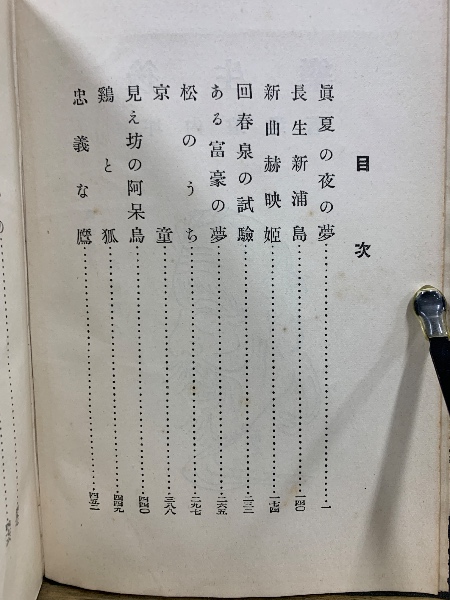 目次
眞夏の夜の夢 一
長生新浦島 一四〇
新曲赫映姫 一七四
回春泉の試驗 二三二
ある富豪の夢 二六五
松のうち 二九七
京童 三八八
見え坊の阿呆鳥 四四〇
鷄と狐 四四九
忠義な鷹 四五一